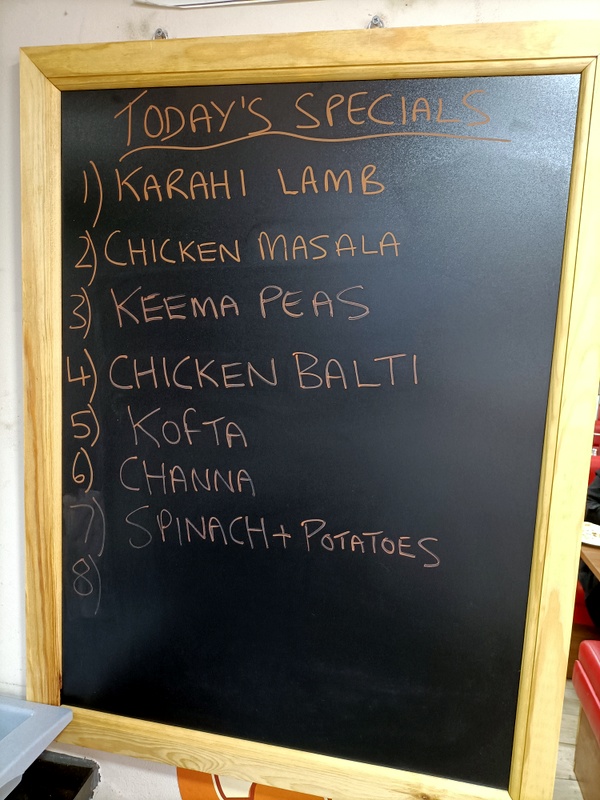 TODAY'S SPECIALS
1) KARAHI LAMB
2) CHICKEN MASALA
3) KEEMA PEAS
4) CHICKEN BALTI
5) KOFTA
6) CHANNA
7) SPINACH + POTATOES
8)